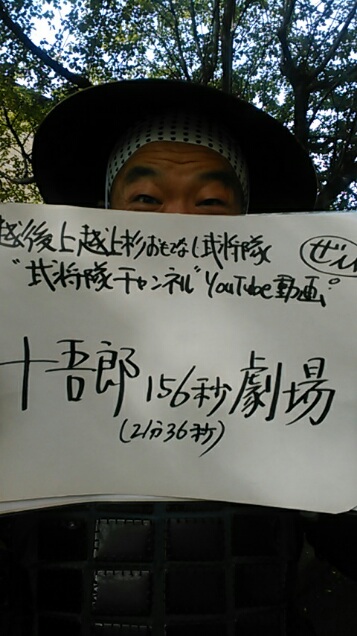 越後上越上杉おもてなし武将隊
"武将隊チャンネル"YouTube動画。
十吾郎156秒劇場
(2分36秒)